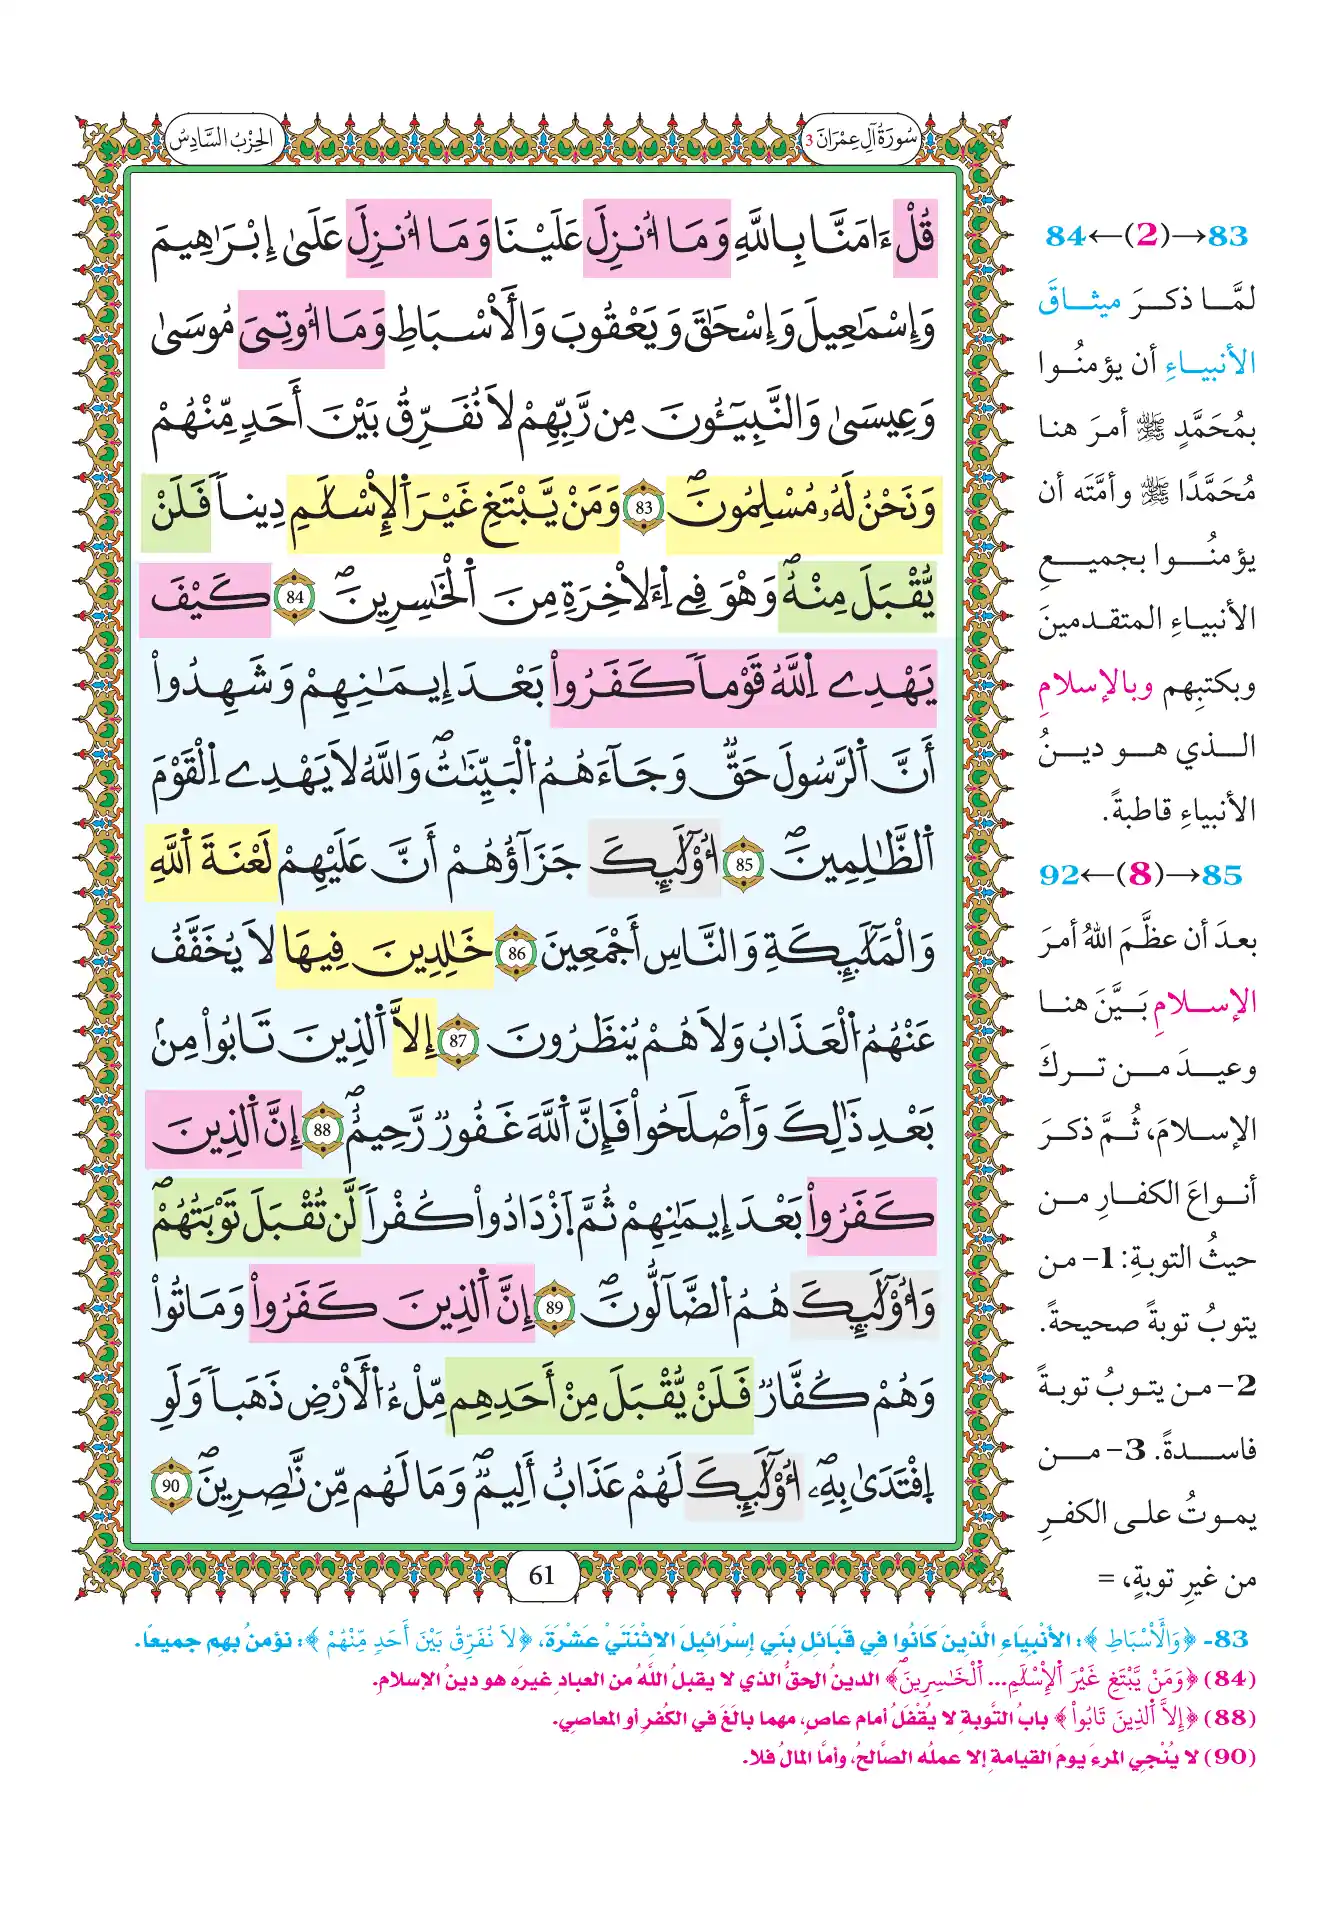 سُورَةُ آلِ عِمْرَانَ 3
الحِزْبُ السَّادِسُ
قُلْ ءَامَنَّا بِاللَّهِ وَمَا أُنزِلَ عَلَيْنَا وَمَا أُنزِلَ عَلَىٰ إِبْرَاهِيمَ
وَإِسْمَاعِيلَ وَإِسْحَاقَ وَيَعْقُوبَ وَالْأَسْبَاطِ وَمَا أُوتِيَ مُوسَىٰ
وَعِيسَىٰ وَالنَّبِيٓـُٔونَ مِن رَّبِّهِمْ لَا نُفَرِّقُ بَيْنَ أَحَدٍ مِّنْهُمْ
وَنَحْنُ لَهُۥ مُسْلِمُونَ 83 وَمَنْ يَّبْتَغِ غَيْرَ ٱلْإِسْلَٰمِ دِيناً فَلَنْ
يُّقْبَلَ مِنْهُ وَهُوَ فِي اِ۬لَاخِرَةِ مِنَ ٱلْخَٰسِرِينَ 84 كَيْفَ
يَهْدِي اِ۬للَّهُ قَوْماً كَفَرُواْ بَعْدَ إِيمَٰنِهِمْ وَشَهِدُواْ
أَنَّ ٱلرَّسُولَ حَقٌّ وَجَآءَهُمُ ٱلْبَيِّنَٰتُ وَاللَّهُ لَا يَهْدِي اِ۬لْقَوْمَ
ٱلظَّٰلِمِينَ 85 أُوْلَٰٓئِكَ جَزَآؤُهُمْ أَنَّ عَلَيْهِمْ لَعْنَةَ ٱللَّهِ
وَالْمَلَٰٓئِكَةِ وَالنَّاسِ أَجْمَعِينَ 86 خَٰلِدِينَ فِيهَا لَا يُخَفَّفُ
عَنْهُمُ ٱلْعَذَابُ وَلَا هُمْ يُنظَرُونَ 87 إِلَّا ٱلَّذِينَ تَابُواْ مِنۢ
بَعْدِ ذَٰلِكَ وَأَصْلَحُواْ فَإِنَّ ٱللَّهَ غَفُورٌ رَّحِيمٌ 88 إِنَّ ٱلَّذِينَ
كَفَرُواْ بَعْدَ إِيمَٰنِهِمْ ثُمَّ اَ۪زْدَادُواْ كُفْراً لَّن تُقْبَلَ تَوْبَتُهُمْ
وَأُوْلَٰٓئِكَ هُمُ ٱلضَّآلُّونَ 89 إِنَّ ٱلَّذِينَ كَفَرُواْ وَمَاتُواْ
وَهُمْ كُفَّارٌ فَلَنْ يُّقْبَلَ مِنْ أَحَدِهِم مِّلْءُ ٱلْأَرْضِ ذَهَباً وَلَوِ
اِ۪فْتَدَىٰ بِهِۦٓ أُوْلَٰٓئِكَ لَهُمْ عَذَابٌ أَلِيمٌ وَمَا لَهُم مِّن نَّٰصِرِينَ 90
61
83→(2)←84
لمَّا ذكرَ ميثاقَ
الأنبياءِ أن يؤمنُوا
بمُحَمَّدٍ ﷺ أمرَ هنا
مُحَمَّدًا ﷺ وأمَّتَه أن
يؤمنُوا بجميعِ
الأنبياءِ المتقدمينَ
وبكتبِهم وبالإسلامِ
الذي هو دينُ
الأنبياءِ قاطبةً.
85→(8)←92
بعدَ أن عظَّمَ اللهُ أمرَ
الإسلامِ بَيَّنَ هنا
وعيدَ من تركَ
الإسلامَ، ثُمَّ ذكرَ
أنواعَ الكفارِ من
حيثُ التوبةِ: 1- من
يتوبُ توبةً صحيحةً.
2- من يتوبُ توبةً
فاسدةً. 3- من
يموتُ على الكفرِ
من غيرِ توبةٍ، =
83- ﴿وَالْأَسْبَاطِ﴾: الأنبِيَاءِ الَّذِينَ كَانُوا فِي قَبَائِلِ بَنِي إِسْرَائِيلَ الاِثْنَتَيْ عَشْرَةَ، ﴿لَا نُفَرِّقُ بَيْنَ أَحَدٍ مِّنْهُمْ﴾: نؤمنُ بهِم جميعًا.
(84) ﴿وَمَنْ يَّبْتَغِ غَيْرَ ٱلْإِسْلَٰمِ... ٱلْخَٰسِرِينَ﴾ الدينُ الحقُّ الذي لا يقبلُ اللَّهُ من العبادِ غيرَه هو دينُ الإسلامِ.
(88) ﴿إِلَّا ٱلَّذِينَ تَابُواْ﴾ بابُ التَّوبةِ لا يُقْفَلُ أمام عاصٍ، مهما بالَغَ في الكُفرِ أو المعاصِي.
(90) لا يُنْجِي المرءَ يومَ القيامةِ إلا عملُه الصَّالحُ، وأمَّا المالُ فلا.